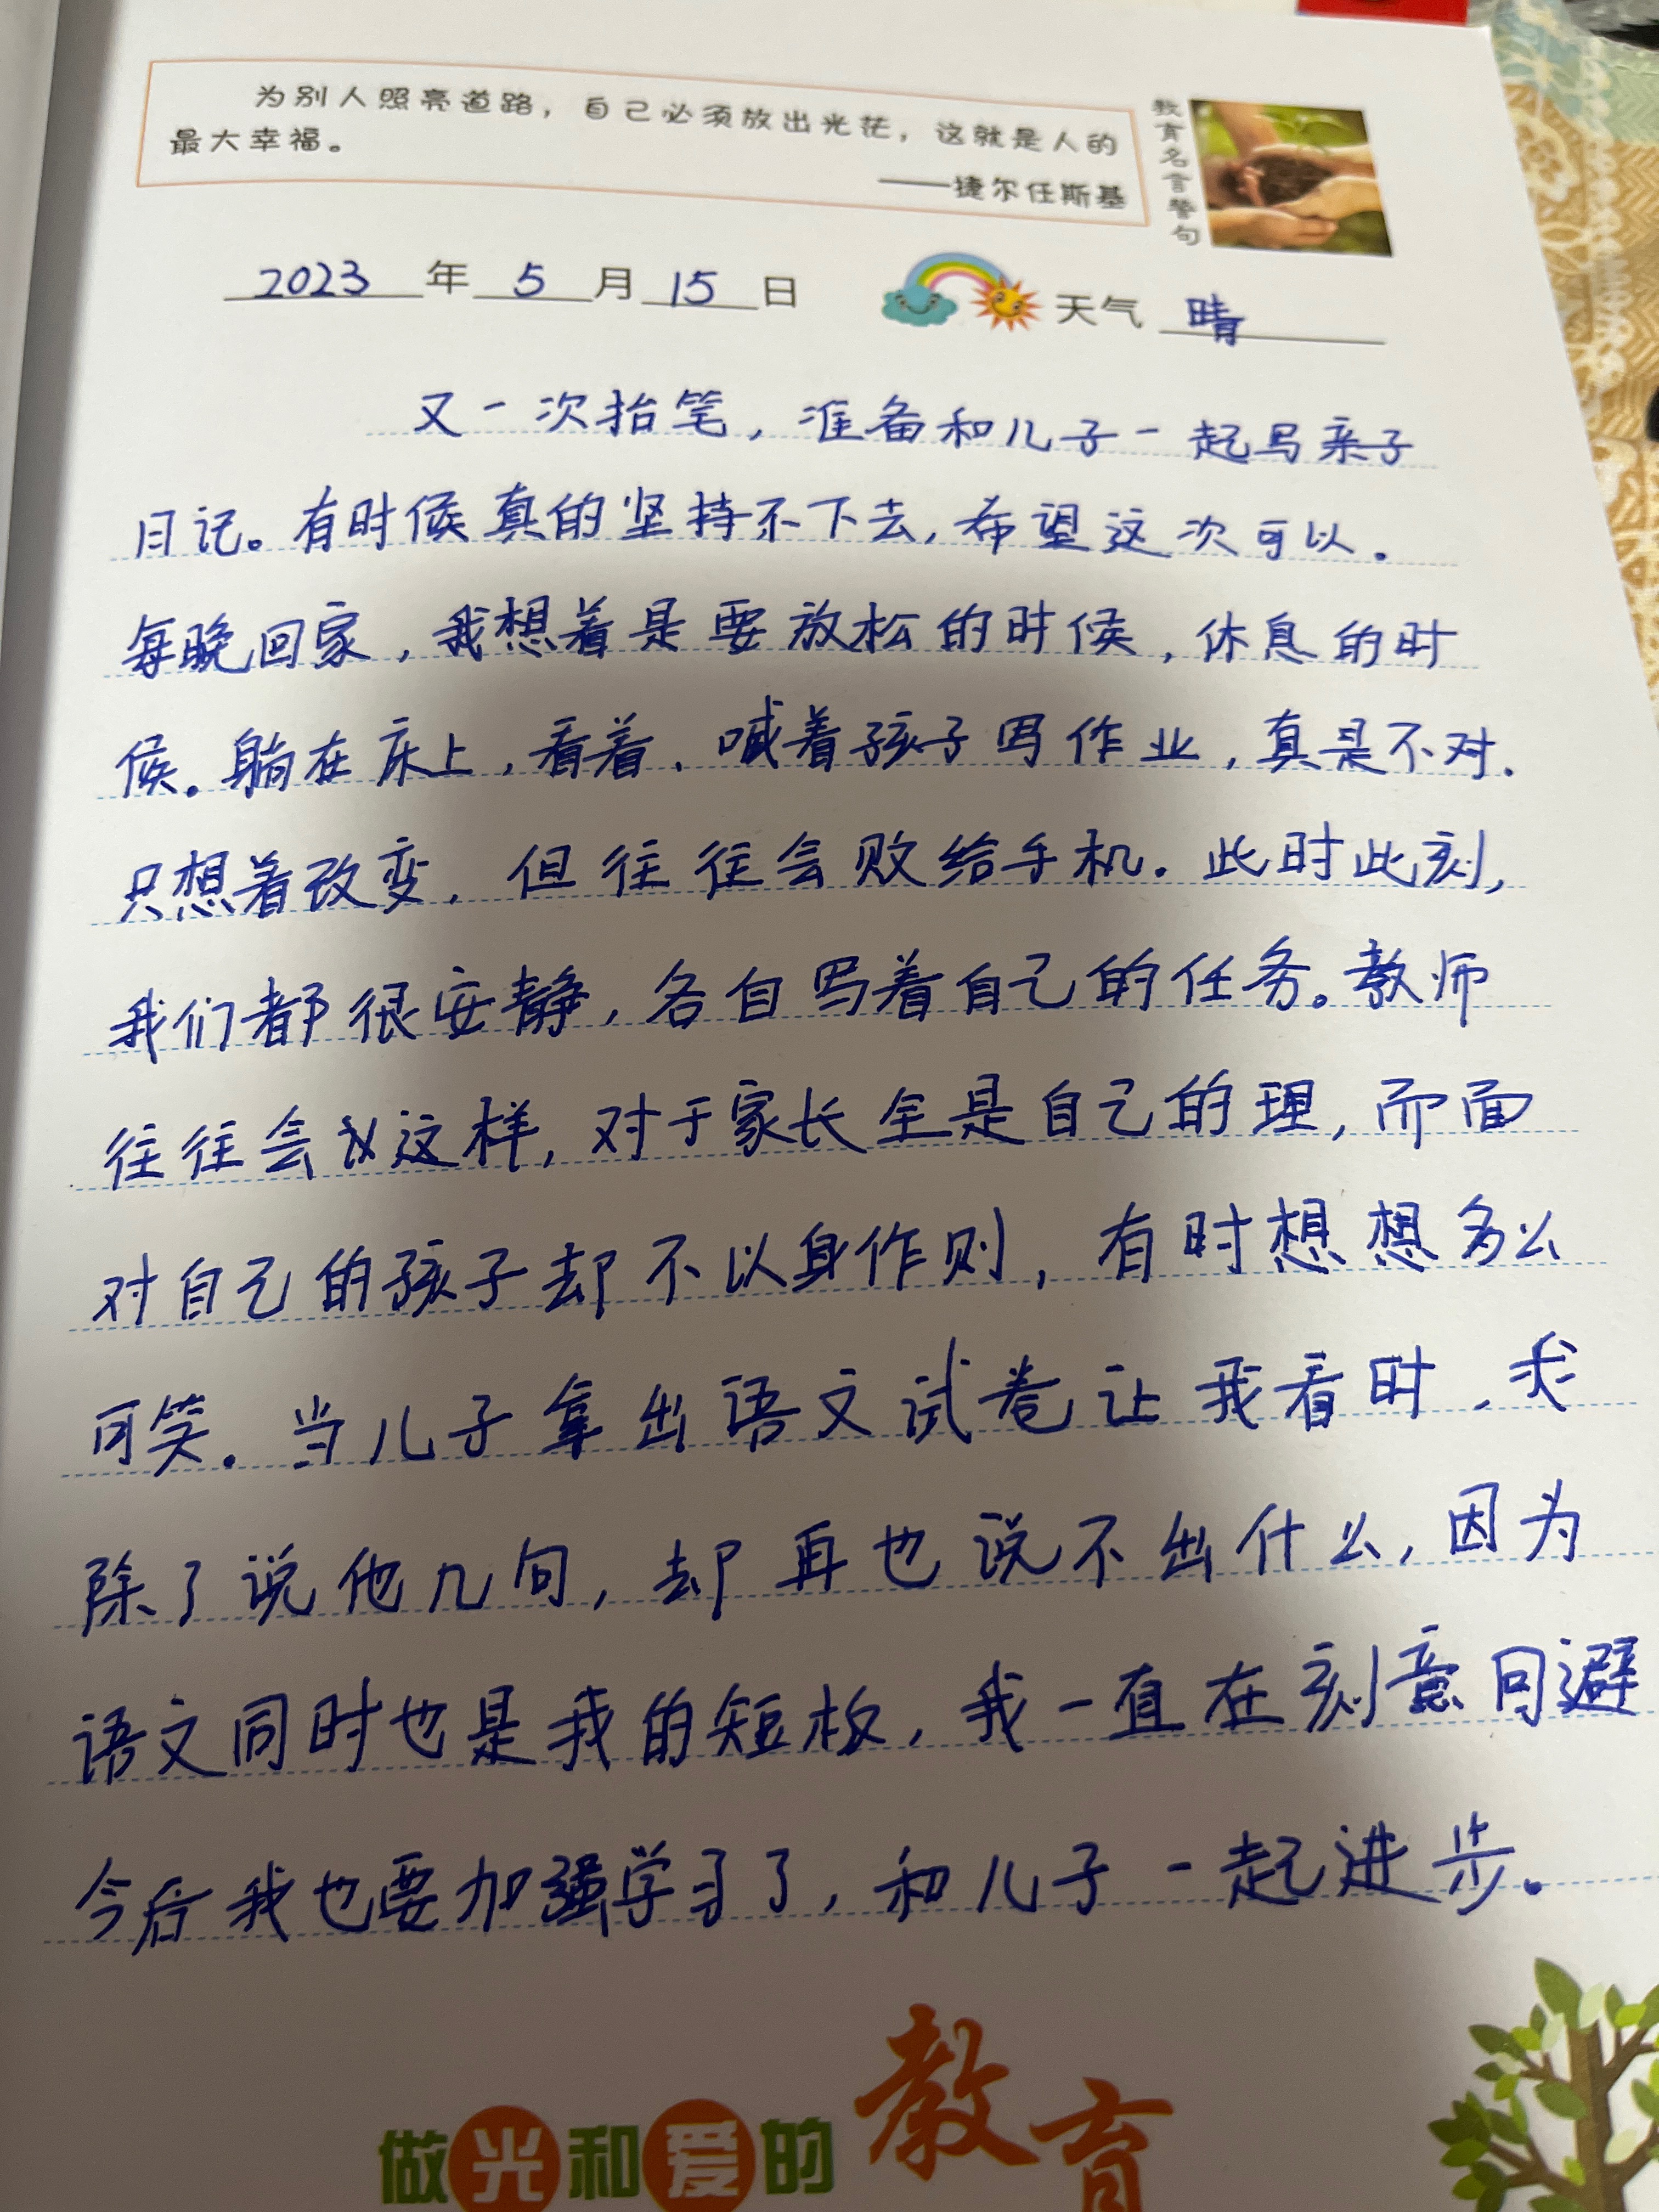 为别人照亮道路，自己必须放出光茫，这就是人的
最大幸福。
——捷尔任斯基
教育名言警句
2023年5月15日 天气 晴
又一次抬笔，准备和儿子一起写亲子
日记。有时候真的坚持不下去，希望这次可以。
每晚回家，我想着是要放松的时候，休息的时
候。躺在床上，看着、喊着孩子写作业，真是不对.
只想着改变，但往往会败给手机。此时此刻，
我们都很安静，各自写着自己的任务。教师
往往会这样，对于家长全是自己的理，而面
对自己的孩子却不以身作则，有时想想多么
可笑。当儿子拿出语文试卷让我看时，我
除了说他几句，却再也说不出什么，因为
语文同时也是我的短板，我一直在刻意回避
今后我也要加强学习了，和儿子一起进步。
做光和爱的教育